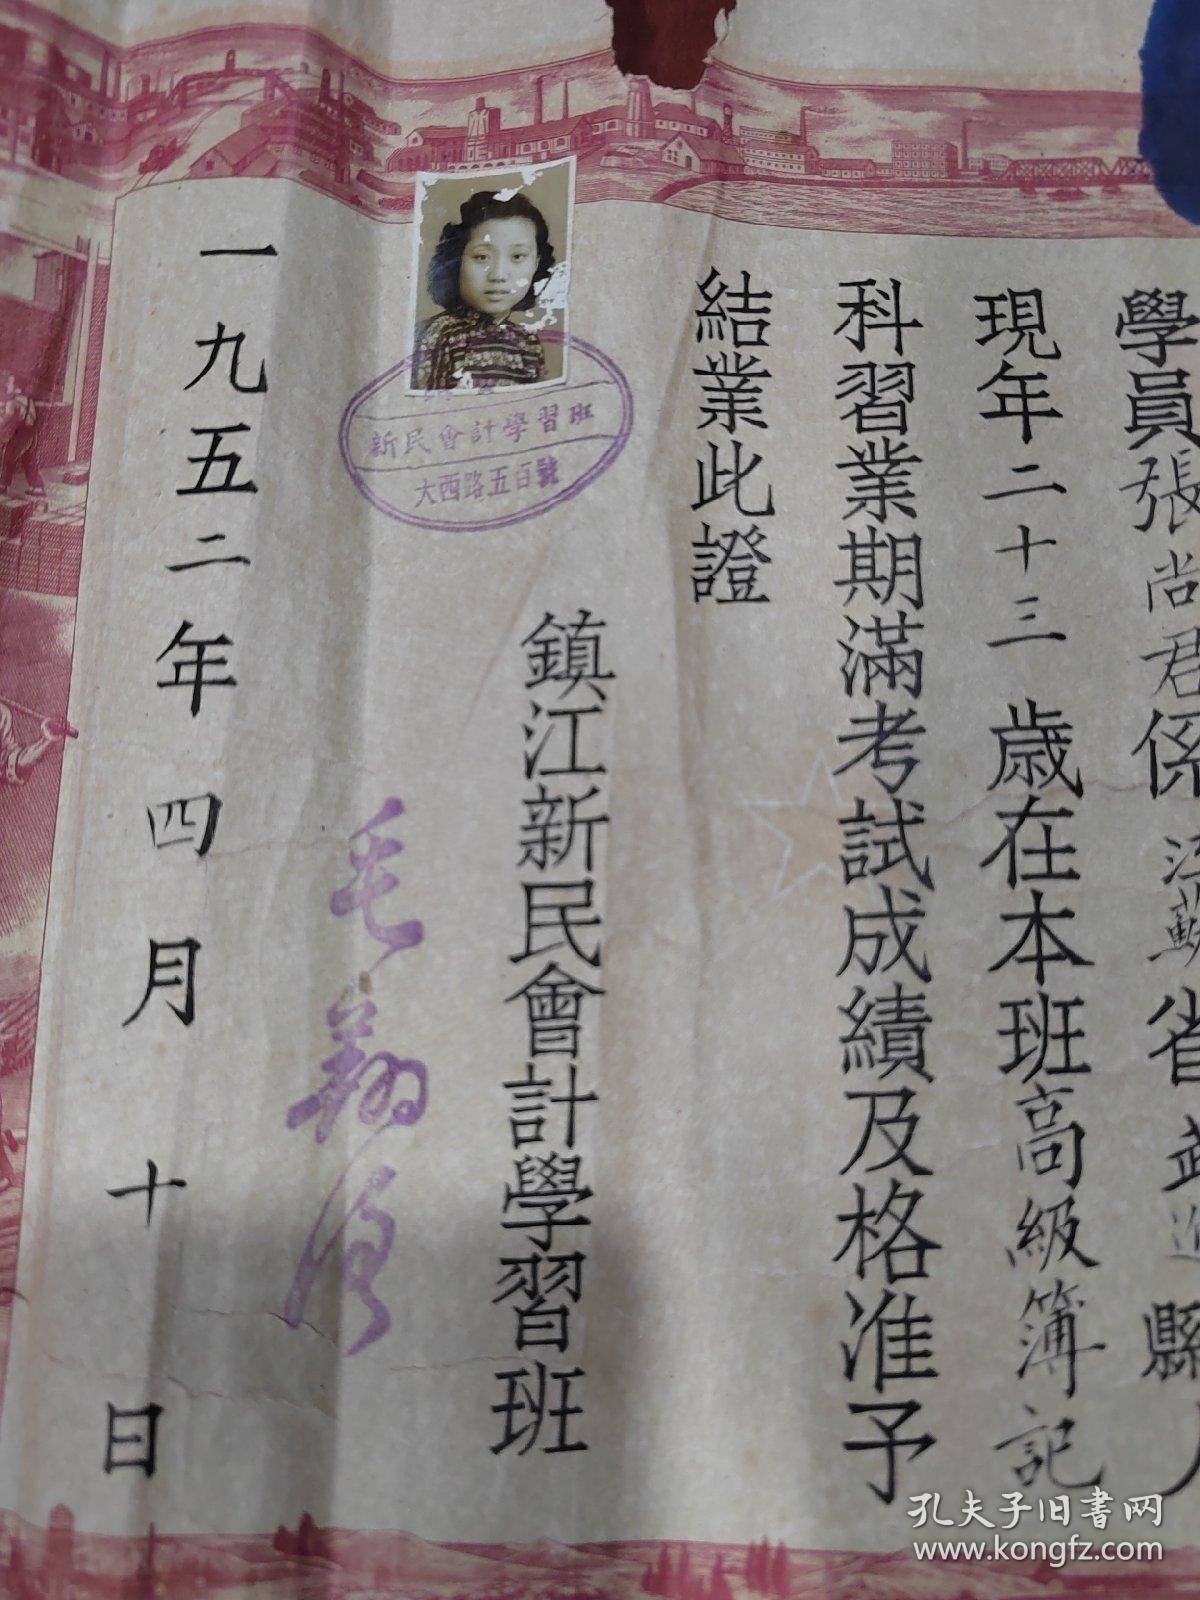 學員張尚君係江蘇省武進縣人
現年二十三歲在本班高級簿記
科習業期滿考試成績及格准予
結業此證
鎮江新民會計學習班
新民會計學習班
大西路五百號
一九五二年四月十日
孔夫子旧书网
www.kongfz.com